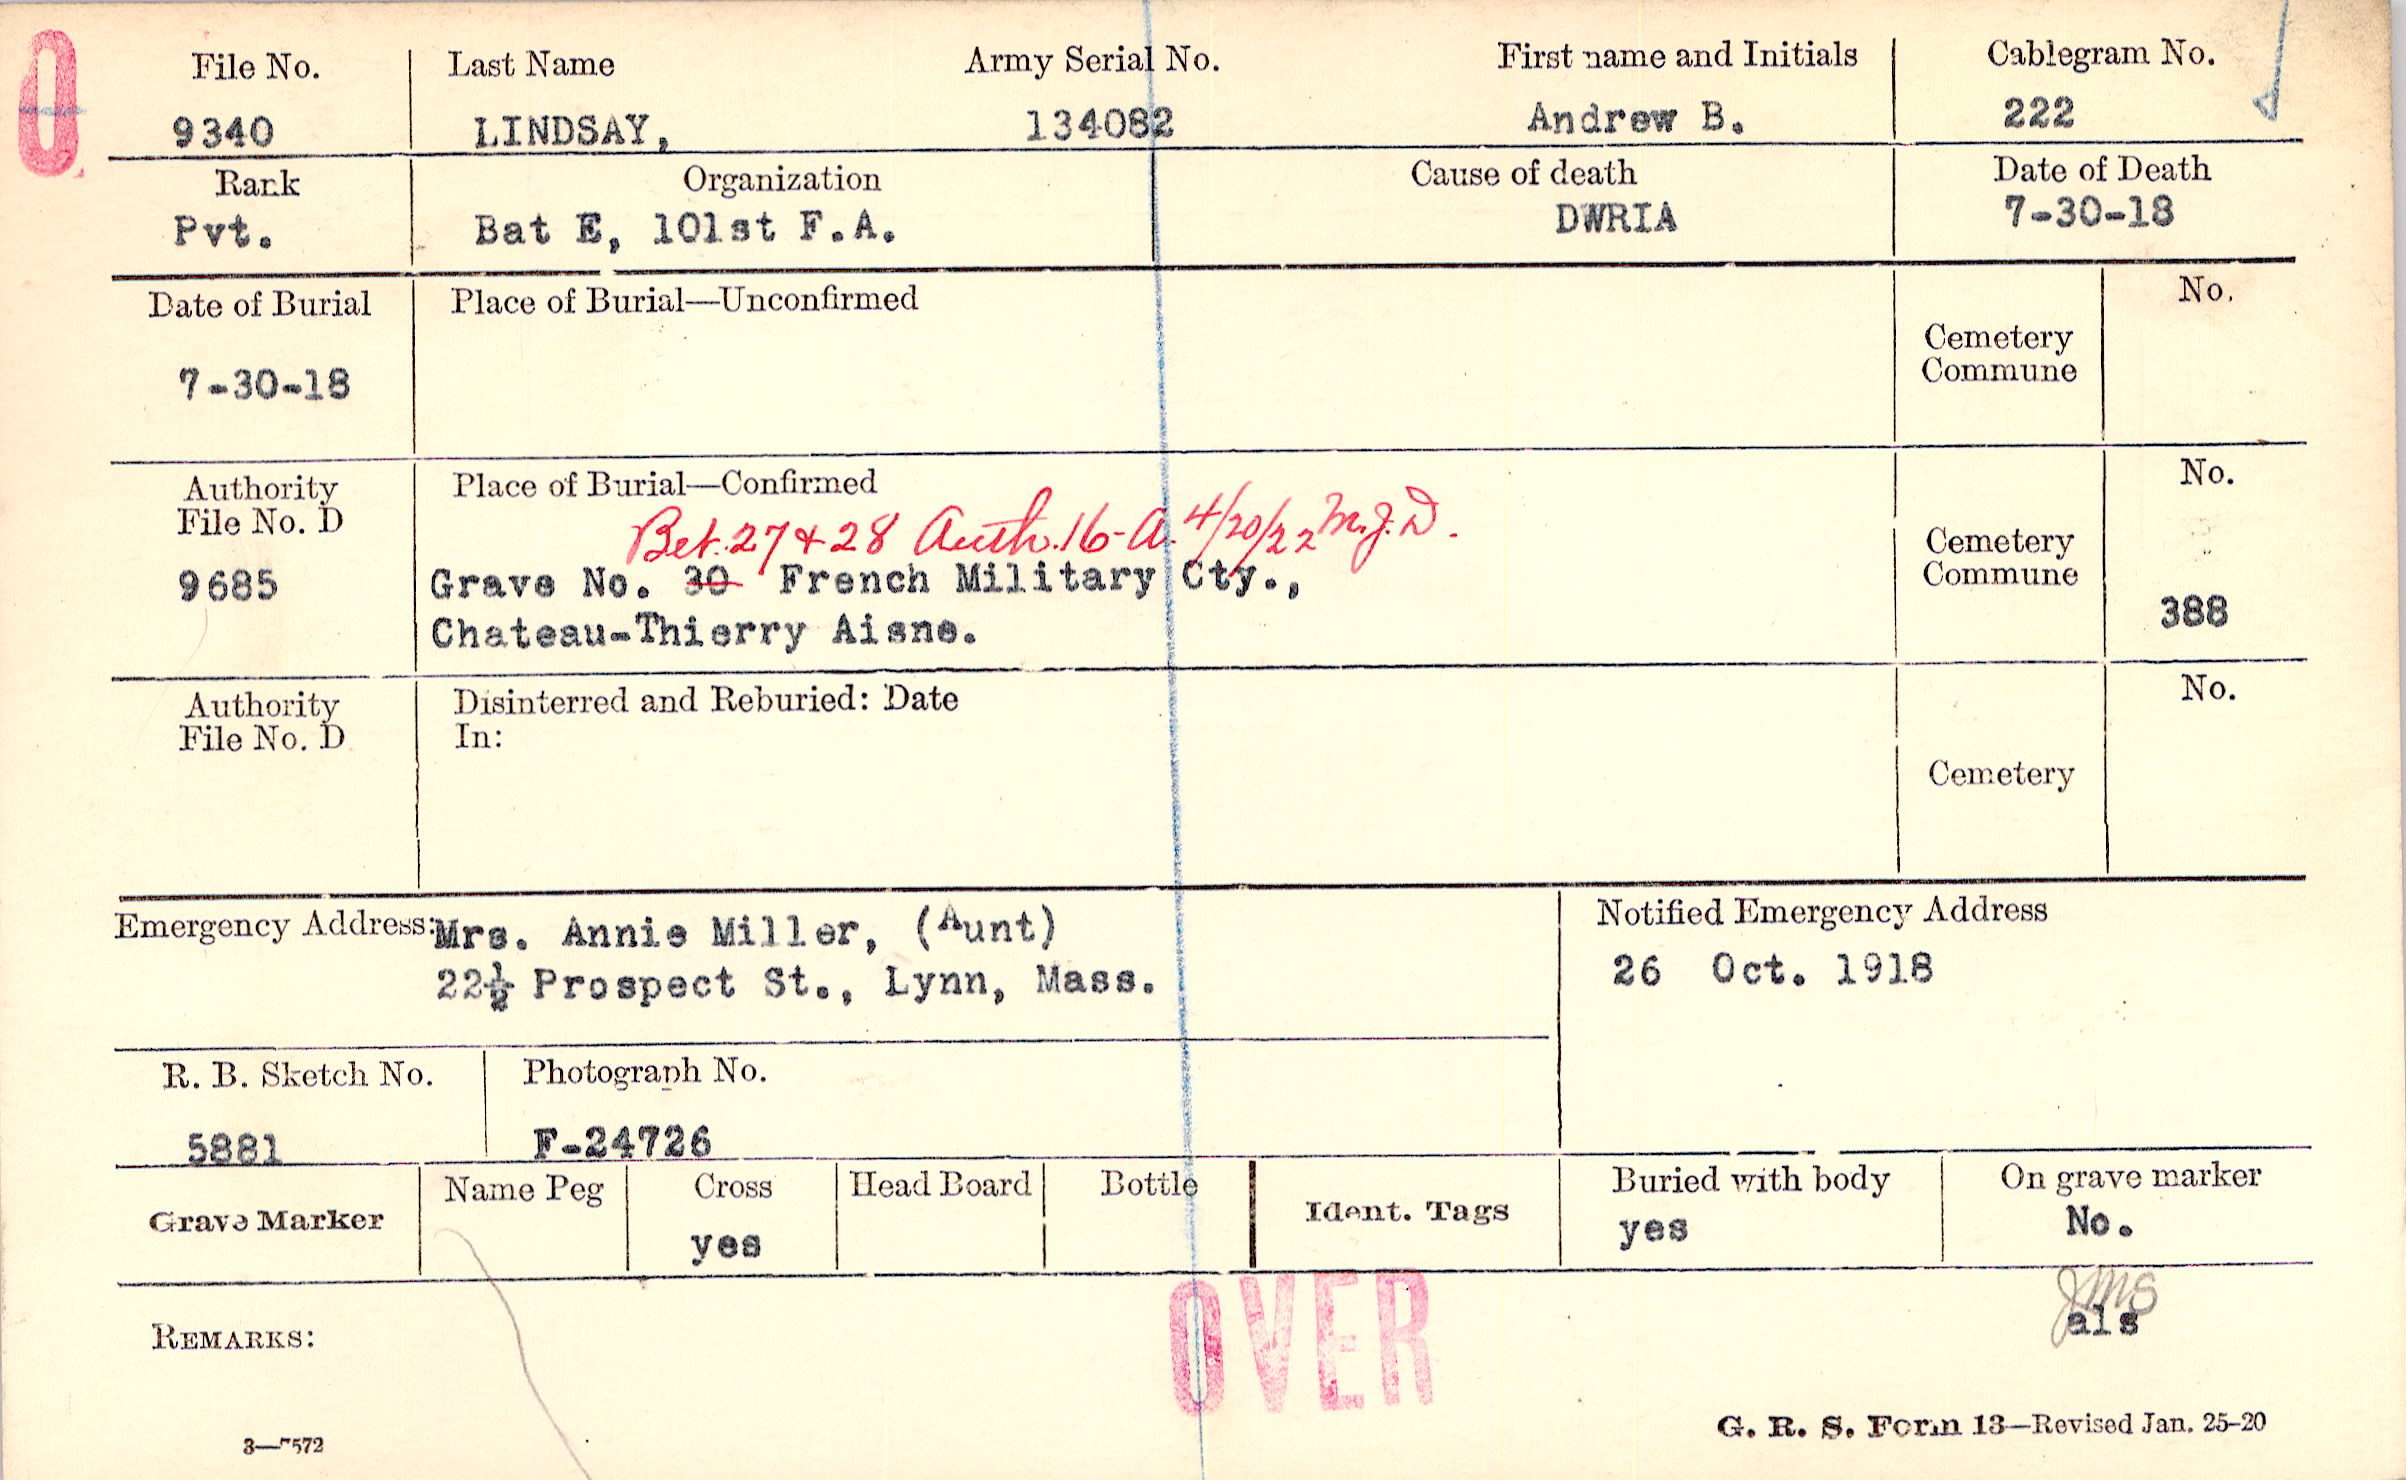 O
File No. Last Name Army Serial No. First name and Initials Cablegram No.
9340 LINDSAY, 134082 Andrew B. 222
Rank Organization Cause of death Date of Death
Pvt. Bat E, 101st F.A. DWRIA 7-30-18
Date of Burial Place of Burial—Unconfirmed No.
Cemetery
Commune
7-30-18
Authority Place of Burial—Confirmed No.
File No. D
Bet. 27 & 28 Auth. 16-A. 4/20/22 M.J.D.
Cemetery
Commune
9685 Grave No. 30 French Military Cty.,
388
Chateau-Thierry Aisne.
Authority Disinterred and Reburied: Date No.
File No. D In:
Cemetery
Emergency Address: Mrs. Annie Miller, (Aunt) Notified Emergency Address
22½ Prospect St., Lynn, Mass. 26 Oct. 1918
R. B. Sketch No. Photograph No.
5881 F-24726
Grave Marker Name Peg Cross Head Board Bottle Ident. Tags Buried with body On grave marker
yes yes No.
JMS
als
OVER
REMARKS:
3—7572 G. R. S. Form 13—Revised Jan. 25-20